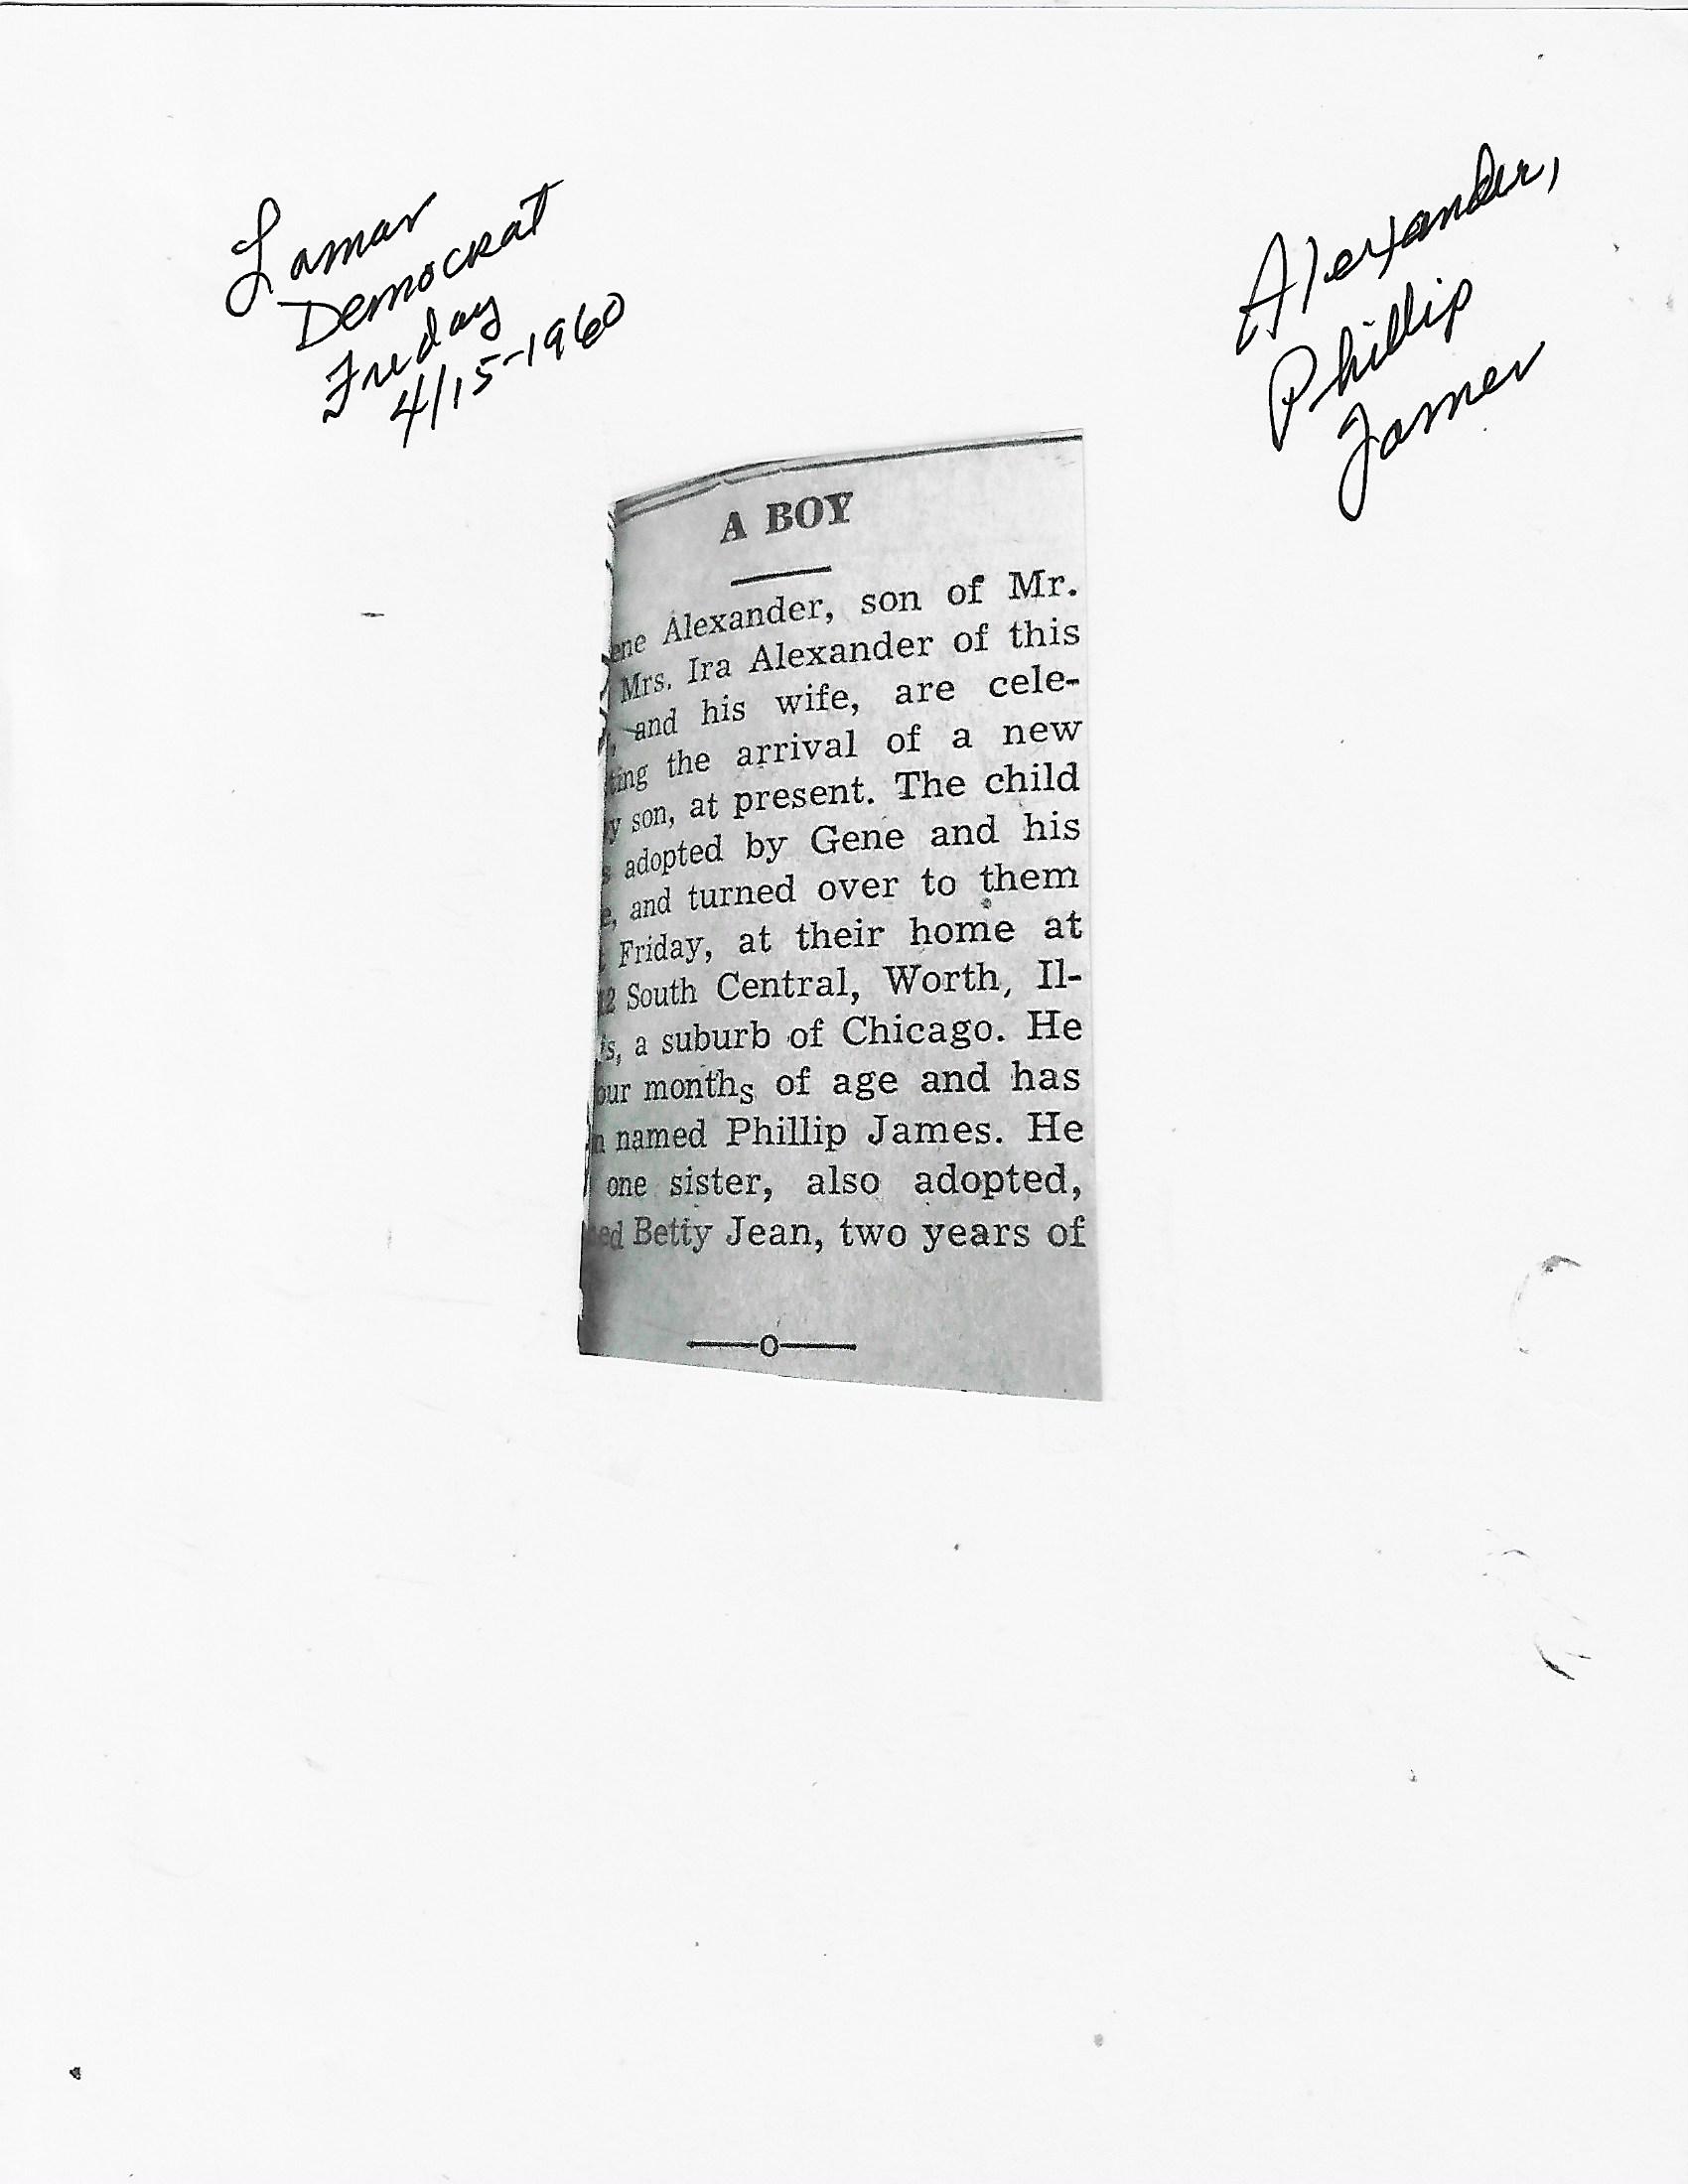 Lamar
Democrat
Friday
4/15-1960
Alexander,
Phillip
James
A BOY
ene Alexander, son of Mr.
Mrs. Ira Alexander of this
, and his wife, are cele-
ting the arrival of a new
y son, at present. The child
s adopted by Gene and his
e, and turned over to them
Friday, at their home at
12 South Central, Worth, Il-
is, a suburb of Chicago. He
our months of age and has
n named Phillip James. He
one sister, also adopted,
ed Betty Jean, two years of